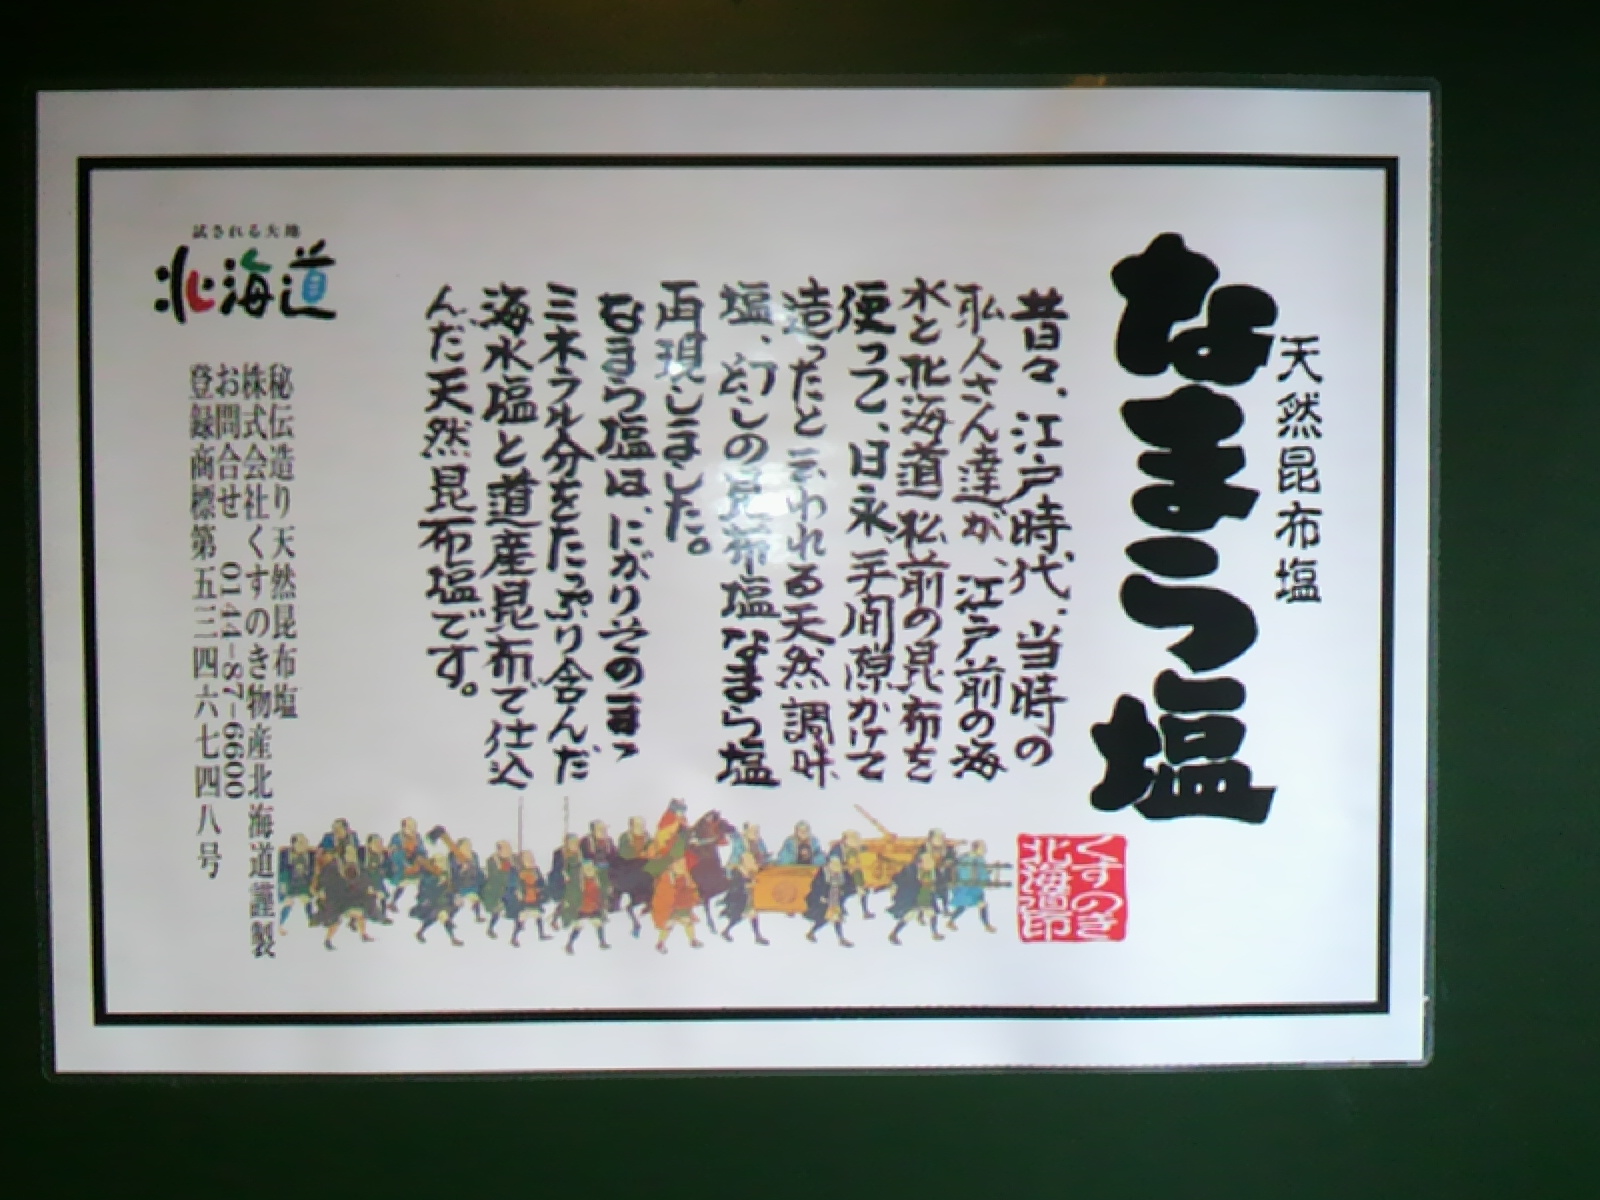 天然昆布塩
なまら塩
昔々、江戸時代、当時の
私人さん達が、江戸前の海
水と北海道松前の昆布を
使って、日永、手間隙かけて
造ったと云われる天然調味
塩、幻しの昆布塩なまら塩
再現しました。
なまら塩は、にがりそのまま
ミネラル分をたっぷり含んだ
海水塩と道産昆布で仕込
んだ天然昆布塩です。
くすのき
北海道印
試される大地
北海道
秘伝造り天然昆布塩
株式会社くすのき物産北海道謹製
お問合せ 0144-87-6600
登録商標第五三四六七四八号